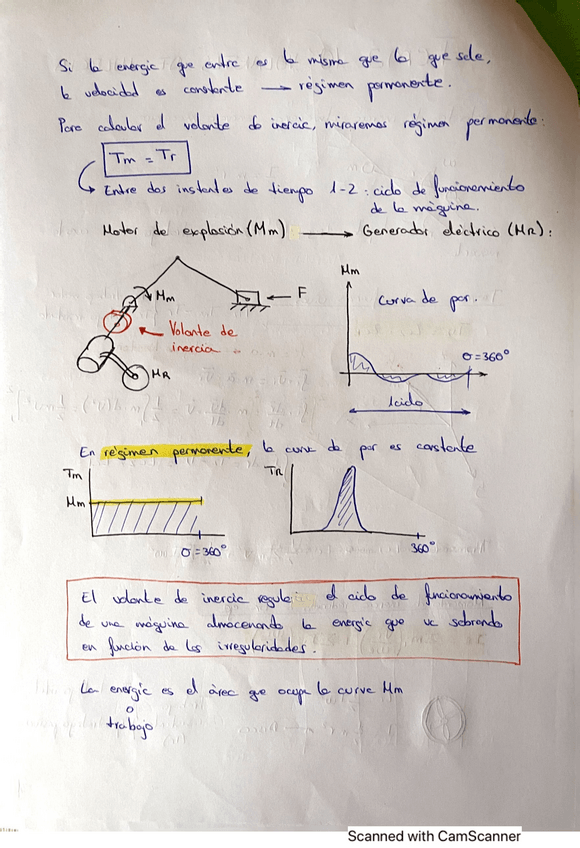 Si la energía que entra es la misma que la que sale,
la velocidad es constante → régimen permanente.
Para calcular el volante de inercia, miraremos régimen permanente:
Tm = Tr
Entre dos instantes de tiempo 1-2: ciclo de funcionamiento
de la máquina.
Motor de explosión (Mm) → Generador eléctrico (MR):
Mm
Mm
F
Curva de par.
Volante de
inercia
σ=360°
MR
1 ciclo
En régimen permanente, la curva de par es constante
Tm
TR
Mm
σ=360°
360°
El volante de inercia regula el ciclo de funcionamiento
de una máquina almacenando la energía que va sobrando
en función de las irregularidades.
La energía es el área que ocupa la curva Mm
o
trabajo
Scanned with CamScanner